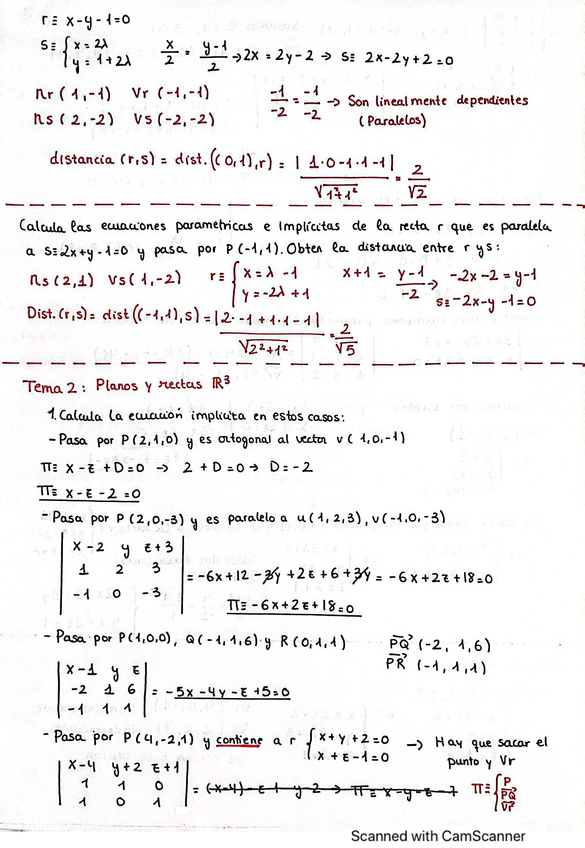 r≡ x-y-1=0
S≡ { x = 2λ   y = 1+2λ   x/2 = y-1/2 → 2x = 2y-2 → S≡ 2x-2y+2=0
nr (1,-1)   Vr (-1,-1)   -1/-2 = -1/-2 → Son linealmente dependientes
ns (2,-2)   Vs (-2,-2)   (Paralelos)
distancia (r,s) = dist. ((0,1),r) = |1·0-1·1-1| / √1²+1² = 2/√2
Calcula las ecuaciones parametricas e Implícitas de la recta r que es paralela
a S≡2x+y-1=0 y pasa por P(-1,1). Obten la distancia entre r y s:
ns (2,1)   Vs (1,-2)   r≡ { x = λ -1   y = -2λ +1   x+1 = y-1/-2 → -2x-2 = y-1
S≡ -2x-y-1=0
Dist. (r,s) = dist ((-1,1),s) = |2·-1+1·1-1| / √2²+1² = 2/√5
Tema 2: Planos y rectas IR³
1. Calcula la ecuación implícita en estos casos:
- Pasa por P(2,1,0) y es ortogonal al vector v (1,0,-1)
π≡ x-z+D=0 → 2+D=0 → D=-2
π≡ x-z-2=0
- Pasa por P(2,0,-3) y es paralelo a u(1,2,3), v(-1,0,-3)
| x-2 y z+3 |
| 1 2 3 | = -6x+12-3y+2z+6+3y = -6x+2z+18=0
| -1 0 -3 |
π≡ -6x+2z+18=0
- Pasa por P(1,0,0), Q(-1,1,6) y R(0,1,1)   PQ (-2,1,6)
PR (-1,1,1)
| x-1 y z |
| -2 1 6 | = -5x-4y-z+5=0
| -1 1 1 |
- Pasa por P(4,-2,1) y contiene a r { x+y+2=0   x+z-1=0 → Hay que sacar el
punto y Vr
| x-4 y+2 z+1 |
| 1 1 0 | = (x-4)-z-1 y-2 → π≡ x-y-z-7   π≡ { P PQ Vr
| 1 0 1 |
Scanned with CamScanner